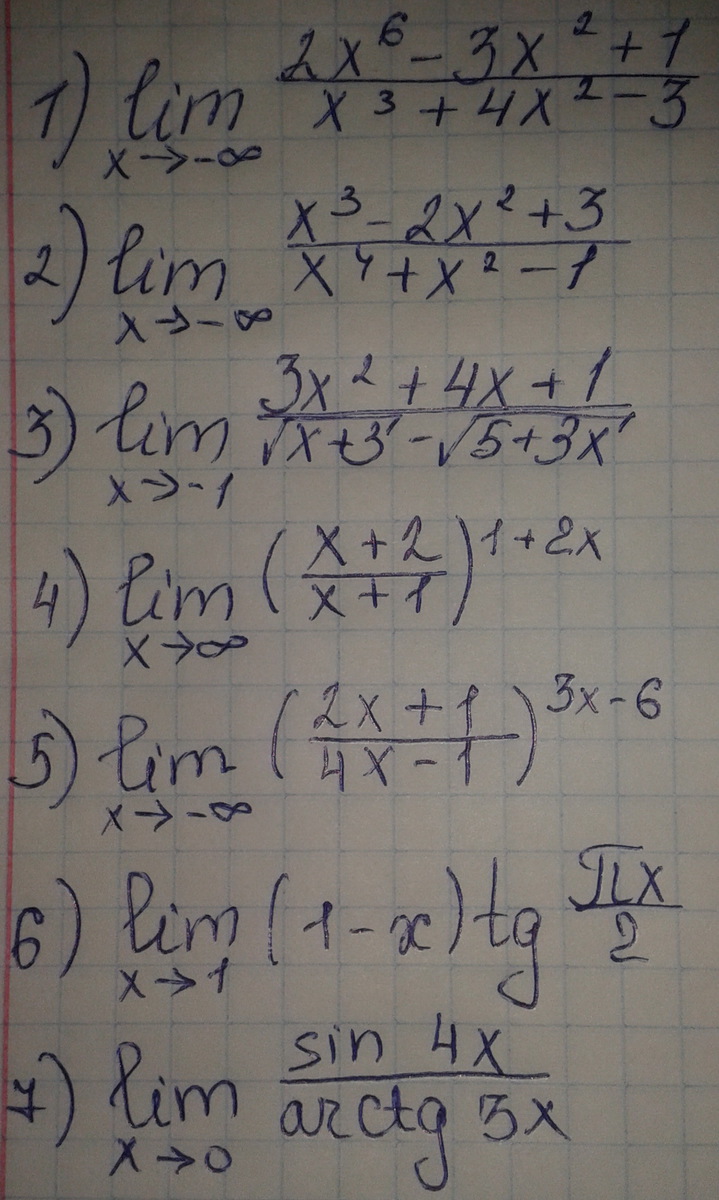 1) lim x→-∞ (2x⁶ - 3x² + 1)/(x³ + 4x² - 3)
2) lim x→-∞ (x³ - 2x² + 3)/(x⁴ + x² - 1)
3) lim x→-1 (3x² + 4x + 1)/(√(x+3) - √(5+3x))
4) lim x→∞ ((x+2)/(x+1))^(1+2x)
5) lim x→-∞ ((2x+1)/(4x-1))^(3x-6)
6) lim x→1 (1-x) tg πx/2
7) lim x→0 (sin 4x)/(arctg 3x)